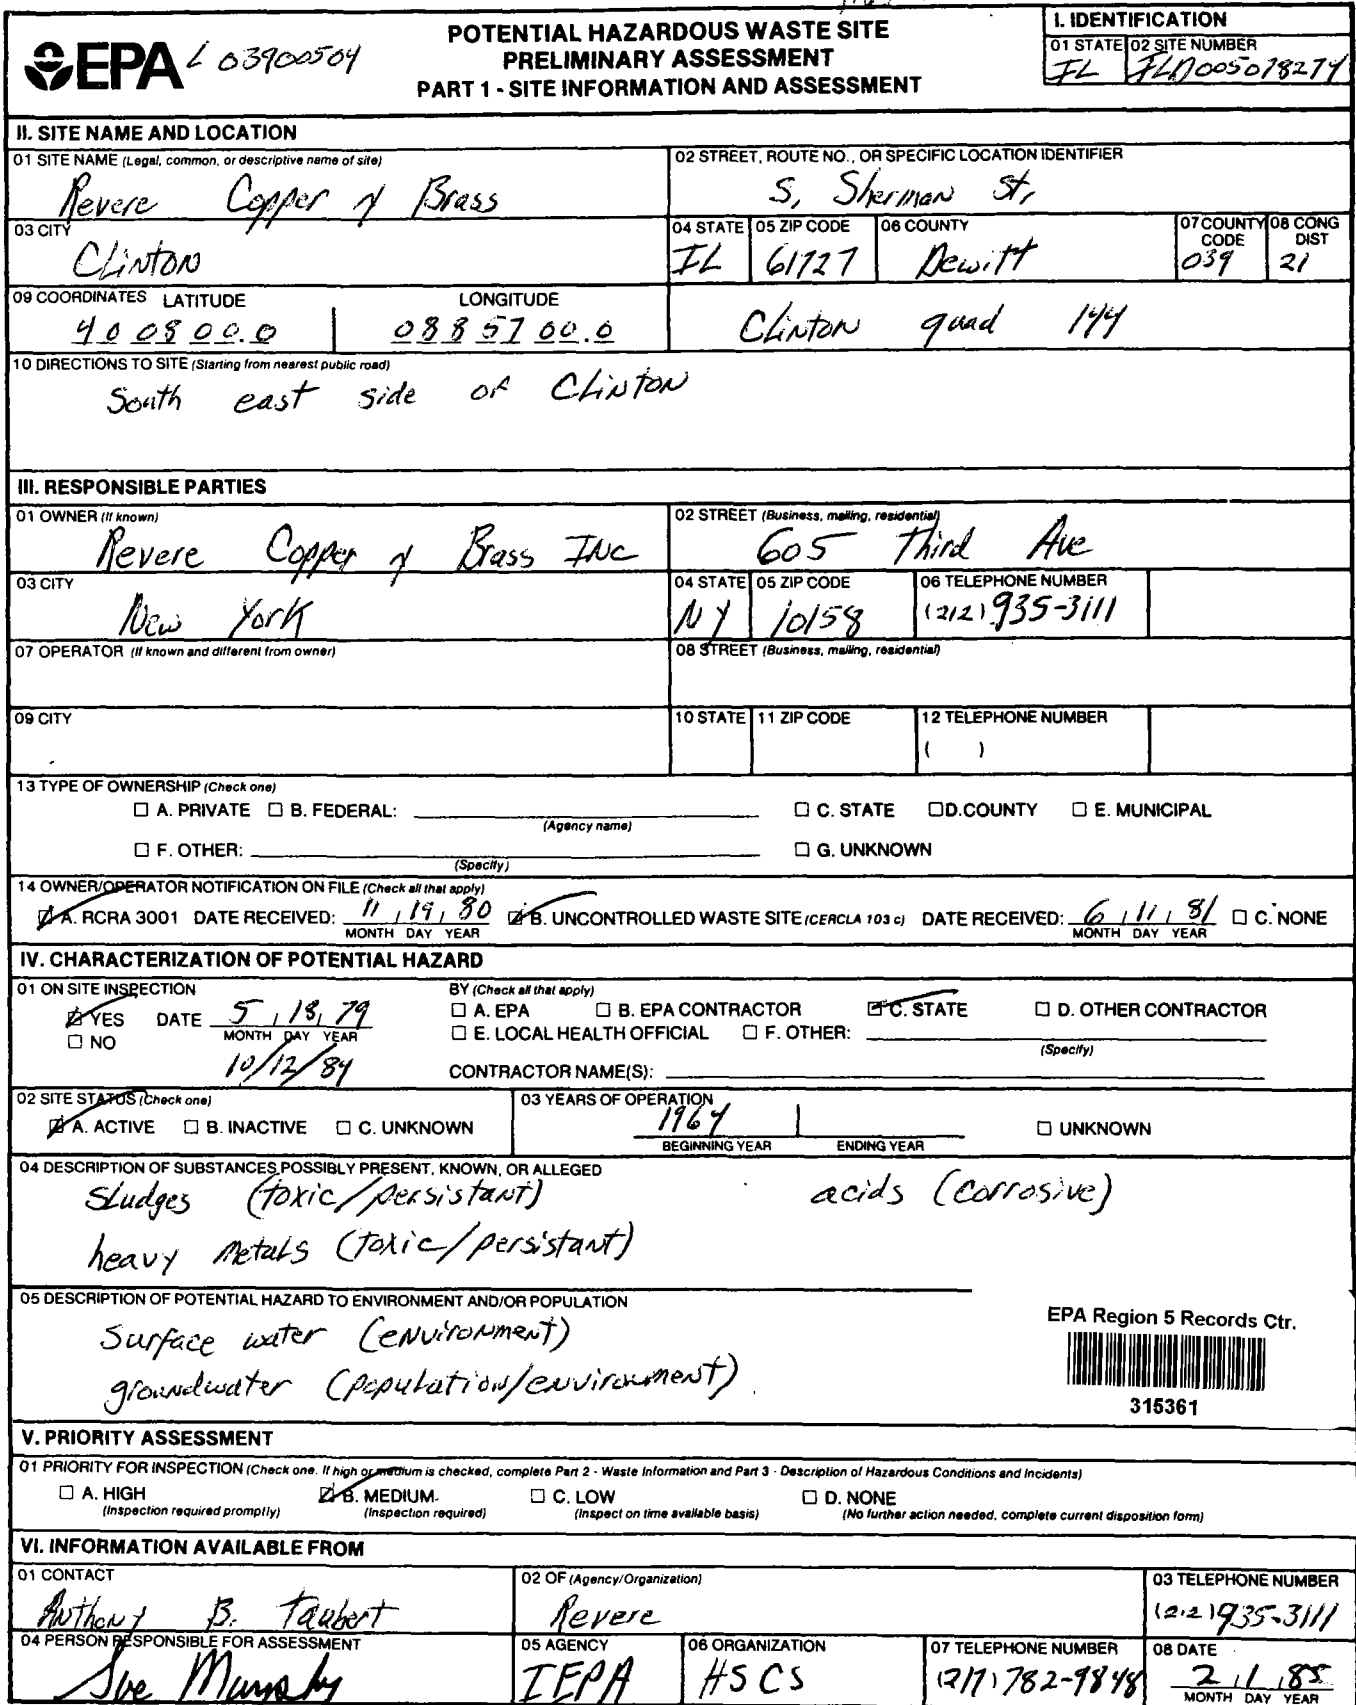 POTENTIAL HAZARDOUS WASTE SITE
PRELIMINARY ASSESSMENT
PART 1 - SITE INFORMATION AND ASSESSMENT
EPA L 03900504
I. IDENTIFICATION
01 STATE 02 SITE NUMBER
IL ILD005078274
II. SITE NAME AND LOCATION
01 SITE NAME (Legal, common, or descriptive name of site)
Revere Copper & Brass
02 STREET, ROUTE NO., OR SPECIFIC LOCATION IDENTIFIER
S. Sherman St.
03 CITY
Clinton
04 STATE 05 ZIP CODE 06 COUNTY 07 COUNTY CODE 08 CONG DIST
IL 61727 Dewitt 039 21
09 COORDINATES LATITUDE LONGITUDE
400800.0 0885700.0 Clinton quad 144
10 DIRECTIONS TO SITE (Starting from nearest public road)
South east side of Clinton
III. RESPONSIBLE PARTIES
01 OWNER (If known)
Revere Copper & Brass Inc
02 STREET (Business, mailing, residential)
605 Third Ave
03 CITY
New York
04 STATE 05 ZIP CODE 06 TELEPHONE NUMBER
NY 10158 (212) 935-3111
07 OPERATOR (If known and different from owner)
08 STREET (Business, mailing, residential)
09 CITY
10 STATE 11 ZIP CODE 12 TELEPHONE NUMBER
( )
13 TYPE OF OWNERSHIP (Check one)
☐ A. PRIVATE ☐ B. FEDERAL: ☐ C. STATE ☐ D.COUNTY ☐ E. MUNICIPAL
(Agency name)
☐ F. OTHER: ☐ G. UNKNOWN
(Specify)
14 OWNER/OPERATOR NOTIFICATION ON FILE (Check all that apply)
☑ A. RCRA 3001 DATE RECEIVED: 11 / 19 / 80 ☑ B. UNCONTROLLED WASTE SITE (CERCLA 103 c) DATE RECEIVED: 6 / 11 / 81 ☐ C. NONE
MONTH DAY YEAR MONTH DAY YEAR
IV. CHARACTERIZATION OF POTENTIAL HAZARD
01 ON SITE INSPECTION
☑ YES DATE 5 / 18 / 79
☐ NO MONTH DAY YEAR
10/12/84
BY (Check all that apply)
☐ A. EPA ☐ B. EPA CONTRACTOR ☑ C. STATE ☐ D. OTHER CONTRACTOR
☐ E. LOCAL HEALTH OFFICIAL ☐ F. OTHER:
(Specify)
CONTRACTOR NAME(S):
02 SITE STATUS (Check one)
☑ A. ACTIVE ☐ B. INACTIVE ☐ C. UNKNOWN
03 YEARS OF OPERATION
1964 ☐ UNKNOWN
BEGINNING YEAR ENDING YEAR
04 DESCRIPTION OF SUBSTANCES POSSIBLY PRESENT, KNOWN, OR ALLEGED
Sludges (toxic/persistant) acids (corrosive)
heavy metals (toxic/persistant)
05 DESCRIPTION OF POTENTIAL HAZARD TO ENVIRONMENT AND/OR POPULATION
Surface water (environment)
groundwater (population/environment)
EPA Region 5 Records Ctr.
315361
V. PRIORITY ASSESSMENT
01 PRIORITY FOR INSPECTION (Check one. If high or medium is checked, complete Part 2 - Waste Information and Part 3 - Description of Hazardous Conditions and Incidents)
☐ A. HIGH ☑ B. MEDIUM ☐ C. LOW ☐ D. NONE
(Inspection required promptly) (Inspection required) (Inspect on time available basis) (No further action needed, complete current disposition form)
VI. INFORMATION AVAILABLE FROM
01 CONTACT
Anthony B. Taubert
02 OF (Agency/Organization)
Revere
03 TELEPHONE NUMBER
(212) 935-3111
04 PERSON RESPONSIBLE FOR ASSESSMENT
Joe
05 AGENCY
IEPA
06 ORGANIZATION
HSCS
07 TELEPHONE NUMBER
(217) 782-9848
08 DATE
2 / 1 / 85
MONTH DAY YEAR